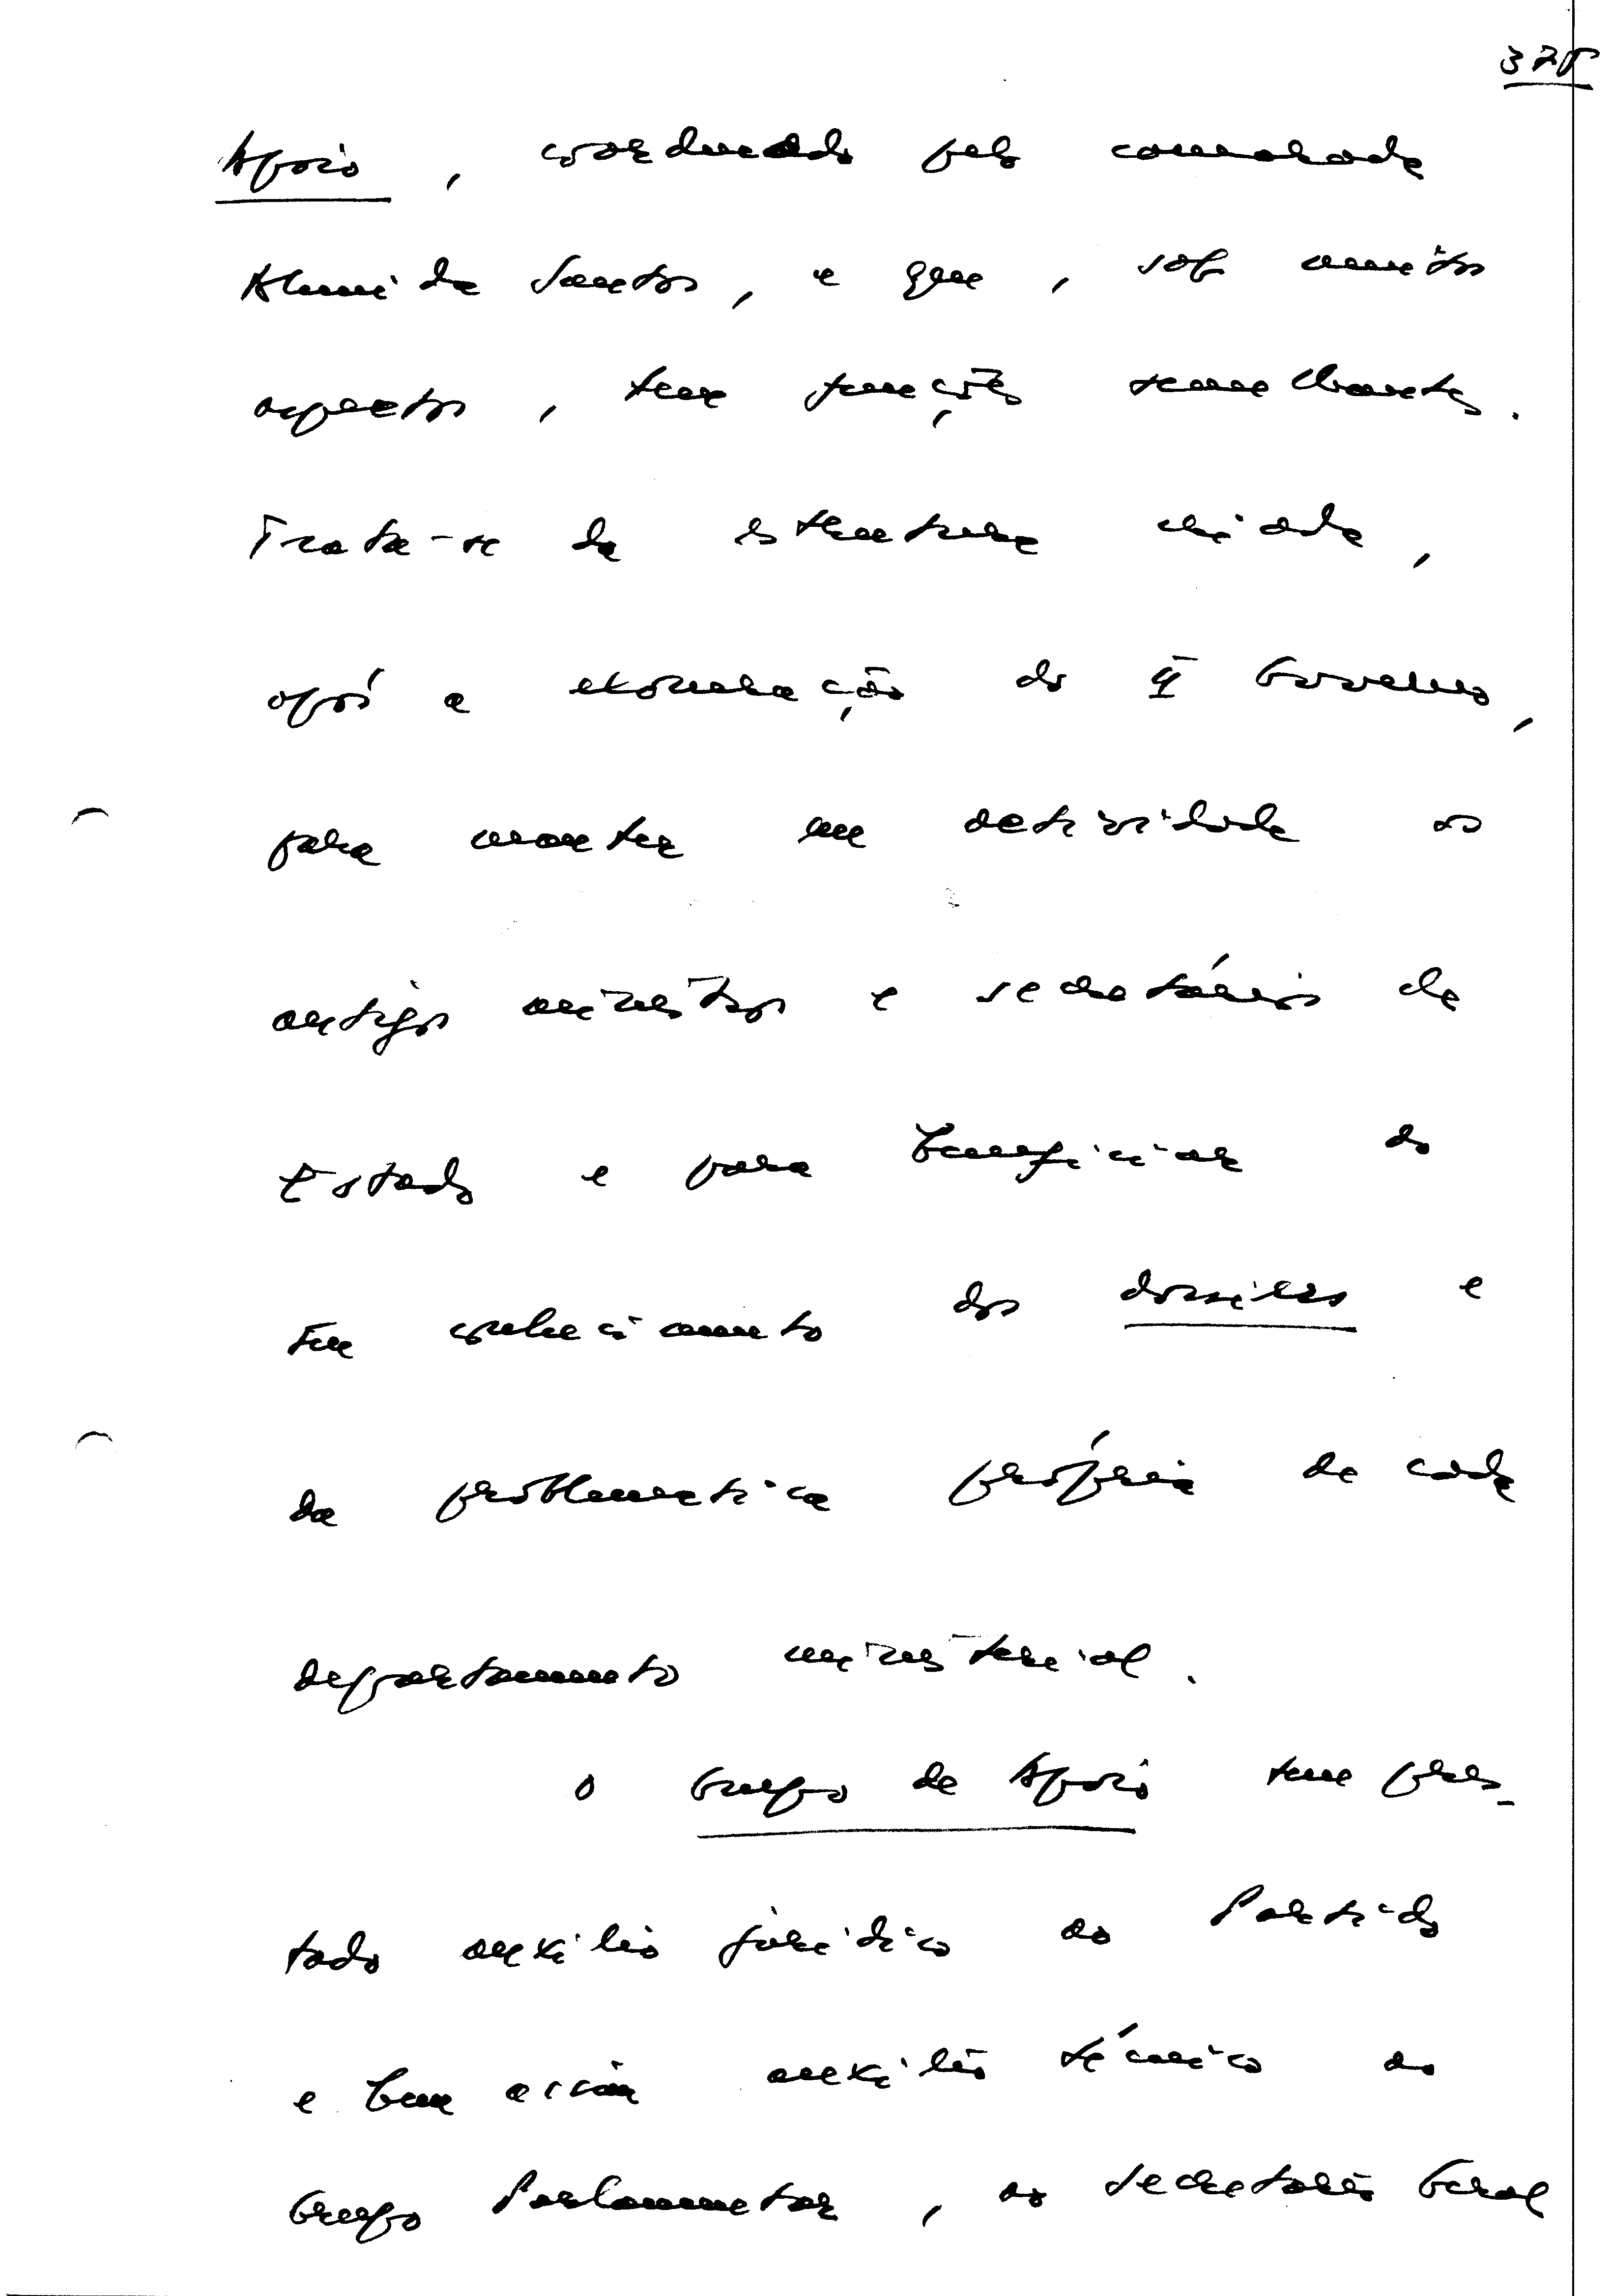 Apoio, coordenado pelo camarada
Almeida Santos, e que, sob muitos
aspectos, tem funções semelhantes.
Trata-se da estrutura criada,
após a exoneração do II Governo,
para manter em actividade os
antigos ministros e secretários de
Estado e para beneficiar do
seu conhecimento dos dossiers e
da problemática própria de cada
departamento ministerial.
O Grupo de Apoio tem pres-
tado auxílio jurídico ao Partido
e bem assim auxílio técnico ao
Grupo Parlamentar, ao Secretário Geral